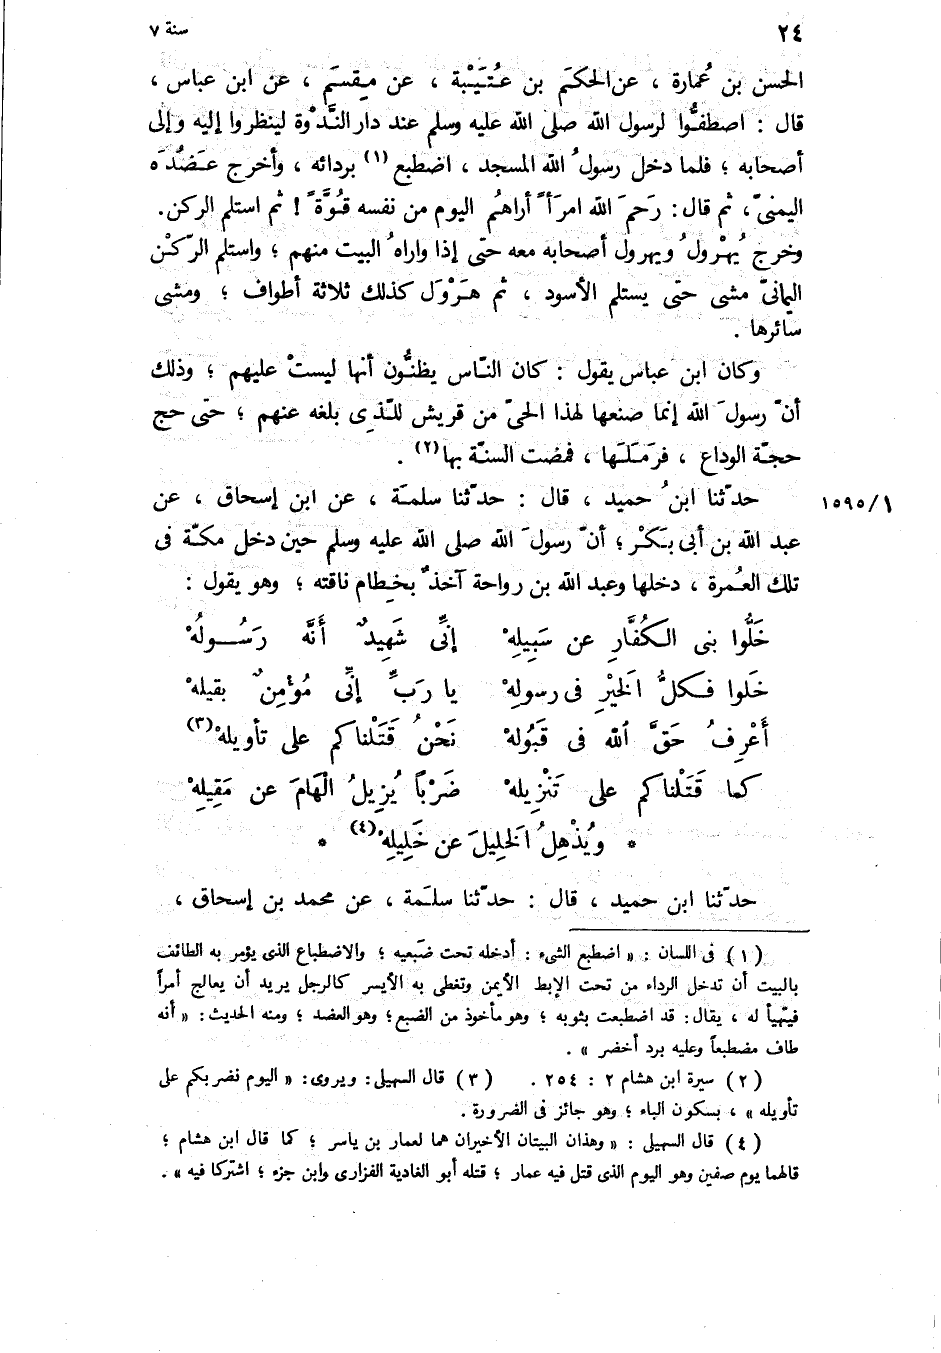 ٢٤ سنة ٧
الحسن بن عُمارة ، عن الحكَم بن عُتَيْبة ، عن مِقسَم ، عن ابن عباس ،
قال : اصطفُّوا لرسول الله صلى الله عليه وسلم عند دار النَّدْوة لينظروا إليه وإلى
أصحابه ؛ فلما دخل رسولُ الله المسجد ، اضطبع (١) بردائه ، وأخرج عَضُدَه
اليمنىّ ، ثم قال : رَحمَ الله امرَأً أراهُم اليوم من نفسه قُوَّةً ! ثم استلم الركن.
وخرج يُهرْولُ ويهرول أصحابه معه حتى إذا واراهُ البيت منهم ؛ واستلم الرّكنْ
اليمانىّ مشى حتى يستلم الأسود ، ثم هَرْوَل كذلك ثلاثة أطواف ؛ ومشى
سائرها .
وكان ابن عباس يقول : كان النّاس يظنُّون أنها ليستْ عليهم ؛ وذلك
أنّ رسولَ الله إنما صنعها لهذا الحىّ من قريش للّذى بلغه عنهم ؛ حتى حج
حجّة الوداع ، فرَمَلَها ، فمضت السنّة بها (٢) .
حدّثنا ابنُ حميد ، قال : حدّثنا سلمة ، عن ابن إسحاق ، عن ١٥٩٥/١
عبد الله بن أبى بَكْر ؛ أنّ رسولَ الله صلى الله عليه وسلم حين دخل مكّة فى
تلك العُمرة ، دخلها وعبد الله بن رواحة آخذٌ بخِطام ناقته ؛ وهو يقول :
خَلُّوا بنى الكُفَّارِ عن سَبِيلِهْ إنِّى شَهِيدٌ أَنَّه رَسُولُهْ
خَلوا فكلُّ الخيْرِ فى رسولِهْ يا رَبِّ إنِّى مُؤْمِنٌ بقيلهْ
أَعْرِفُ حَقَّ الله فى قَبُولهْ نَحْنُ قَتَلْناكم على تأويلهْ (٣)
كما قَتَلْناكم على تَنْزِيلهْ ضَرْبًا يُزِيلُ الْهَامَ عن مَقِيلِهْ
* ويُذْهِلُ الخلِيلَ عن خَلِيلِهْ (٤) *
حدّثنا ابن حميد ، قال : حدّثنا سلَمة ، عن محمد بن إسحاق ،
(١) فى اللسان : « اضطبع الشىء : أدخله تحت ضَبعيه ؛ والاضطباع الذى يؤمر به الطائف
بالبيت أن تدخل الرداء من تحت الإبط الأيمن وتغطى به الأيسر كالرجل يريد أن يعالج أمراً
فيتهيأ له ، يقال : قد اضطبعت بثوبه ؛ وهو مأخوذ من الضبع ؛ وهو العضد ؛ ومنه الحديث : « أنه
طاف مضطبعاً وعليه برد أخضر » .
(٢) سيرة ابن هشام ٢ : ٢٥٤ . (٣) قال السهيلى : ويروى : « اليوم نضربكم على
تأويله » ، بسكون الباء ؛ وهو جائز فى الضرورة .
(٤) قال السهيلى : « وهذان البيتان الأخيران هما لعمار بن ياسر ؛ كما قال ابن هشام ؛
قالهما يوم صفين وهو اليوم الذى قتل فيه عمار ؛ قتله أبو الغادية الفزارى وابن جزء ؛ اشتركا فيه » .